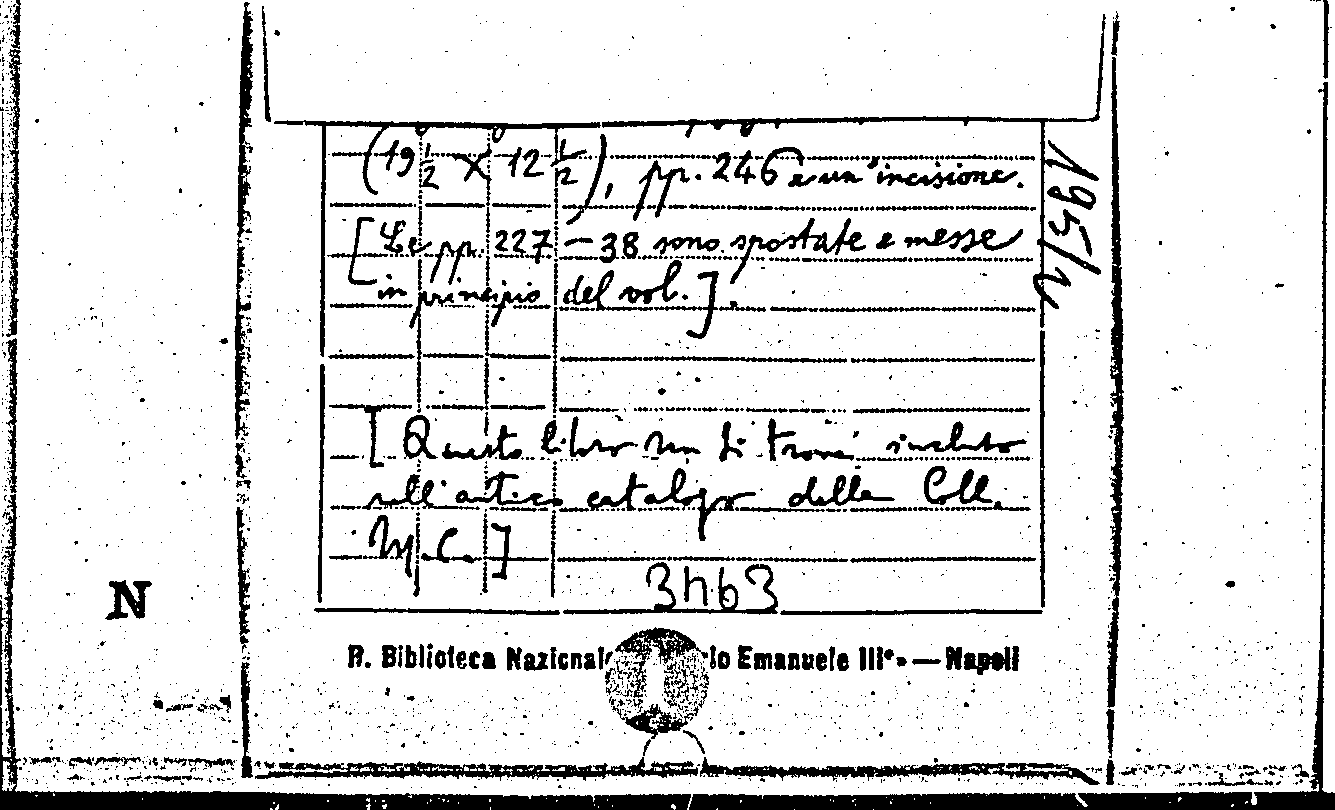 (19 1/2 X 12 1/2), pp. 246 e un'incisione.
[Le pp. 227 – 38 sono spostate e messe
in principio del vol.].
[Questo libro non si trova incluso
nell'antico catalogo della Coll.
M.C.]
3463
195/4
N
R. Biblioteca Nazionale Emanuele III° — Napoli